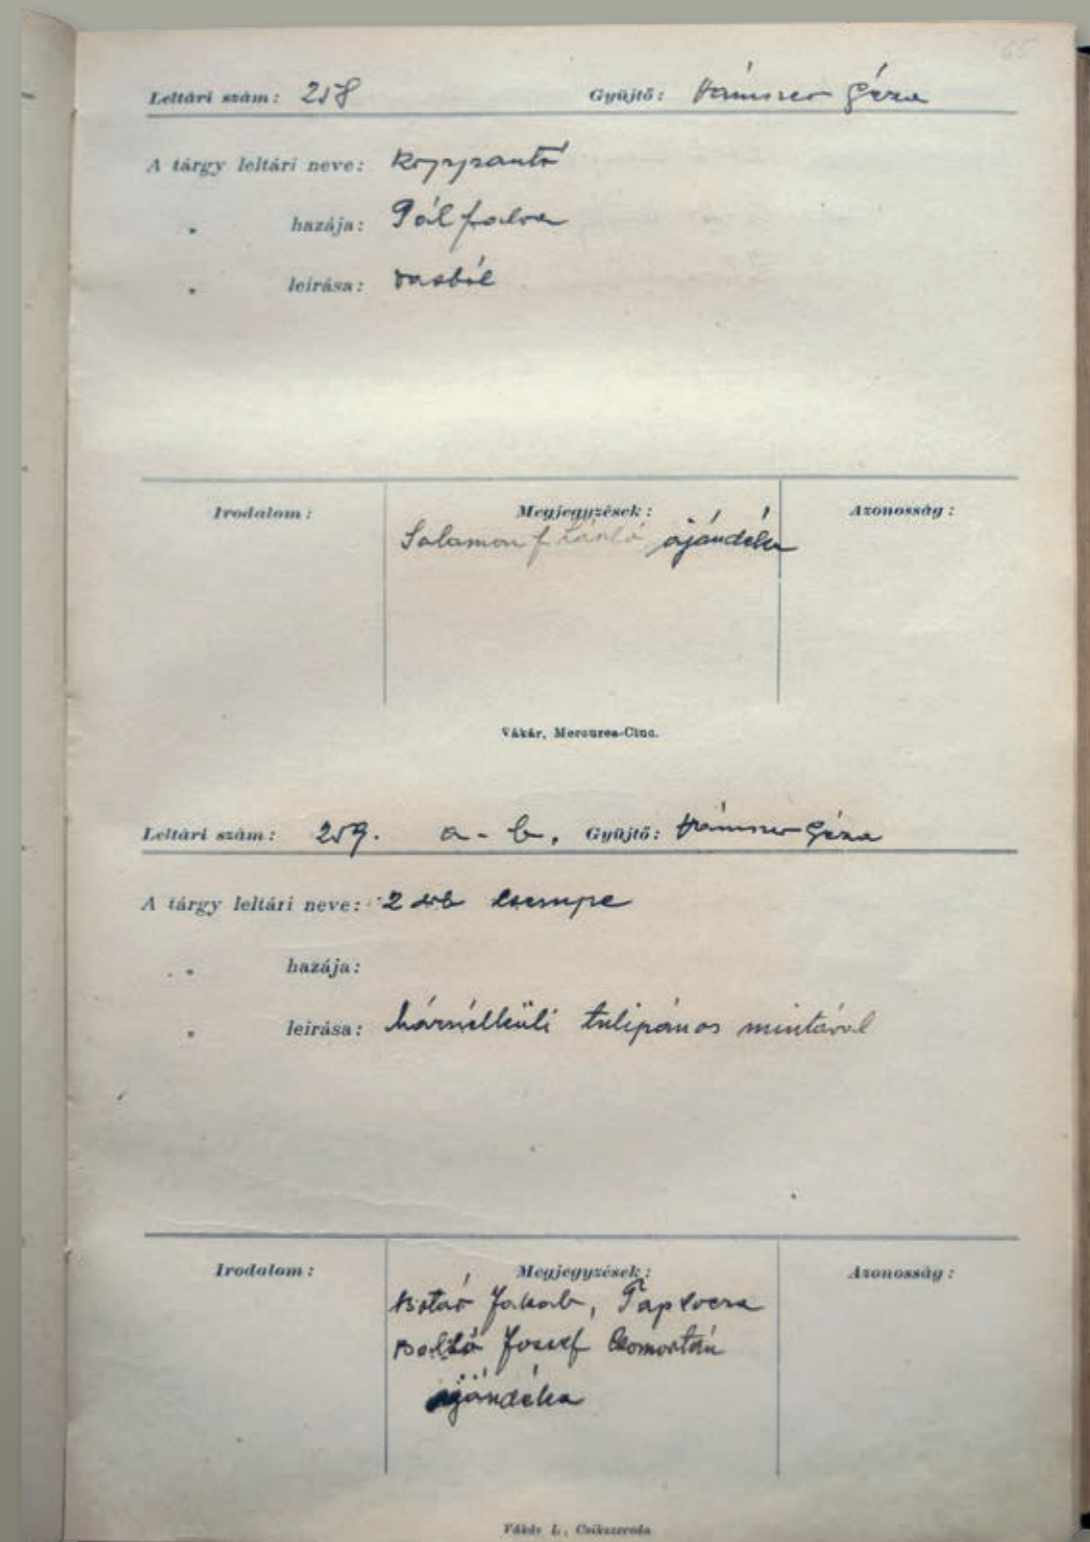 65
Leltári szám: 258 Gyűjtő: Vámszer Géza
A tárgy leltári neve: Koppantó
" hazája: Pálfalva
" leírása: vasból
Irodalom: Megjegyzések: Azonosság:
Salamon f László ajándéka
Vákár, Mercurea-Ciuc.
Leltári szám: 259. a-b. Gyűjtő: Vámszer Géza
A tárgy leltári neve: 2 drb csempe
" hazája:
" leírása: máznélküli tulipános mintával
Irodalom: Megjegyzések: Azonosság:
Jakab, Taplocza
József Csomortán
ajándéka
Vákár L., Csíkszereda